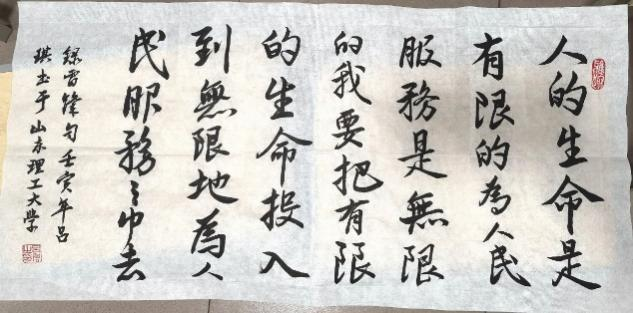 人的生命是
有限的為人民
服務是無限
的我要把有限
的生命投入
到無限地為人
民服務之中去
錄雷鋒句壬寅年吕
琪書于山东理工大学